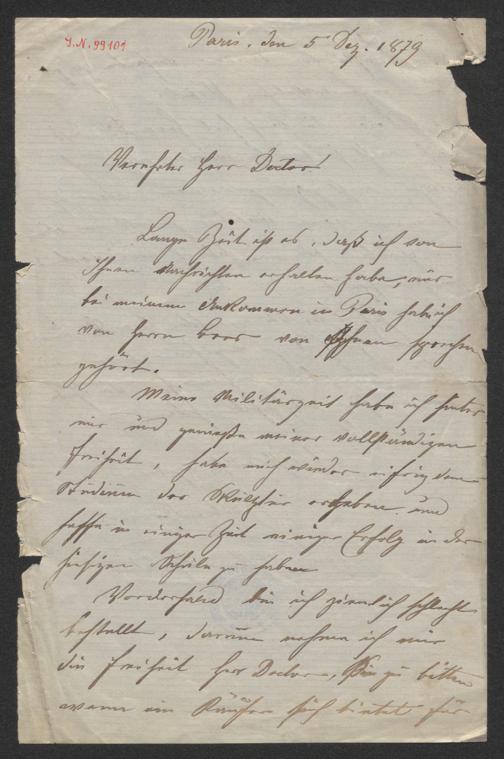 J.N. 99101
Paris, den 5 Dez. 1879
Verehrter Herr Doctor!
Lange Zeit ist es, daß ich von
Ihnen Nachrichten erhalten habe, nur
bei meinem Ankommen in Paris hab ich
von Herrn Beer von Ihnen sprechen
gehört.
Meine Militärzeit habe ich hinter
mir und genieße meiner vollständigen
Freiheit, habe mich wieder eifrig dem
Studium der Skulptur ergeben und
hoffe in einiger Zeit einiger Erfolg in der
hiesigen Schule zu haben
Vorderhand bin ich ziemlich schlecht
bestellt, darum nehme ich mir
die Freiheit Herr Doctor, Sie zu bitten
wenn ein Käufer sich bietet für